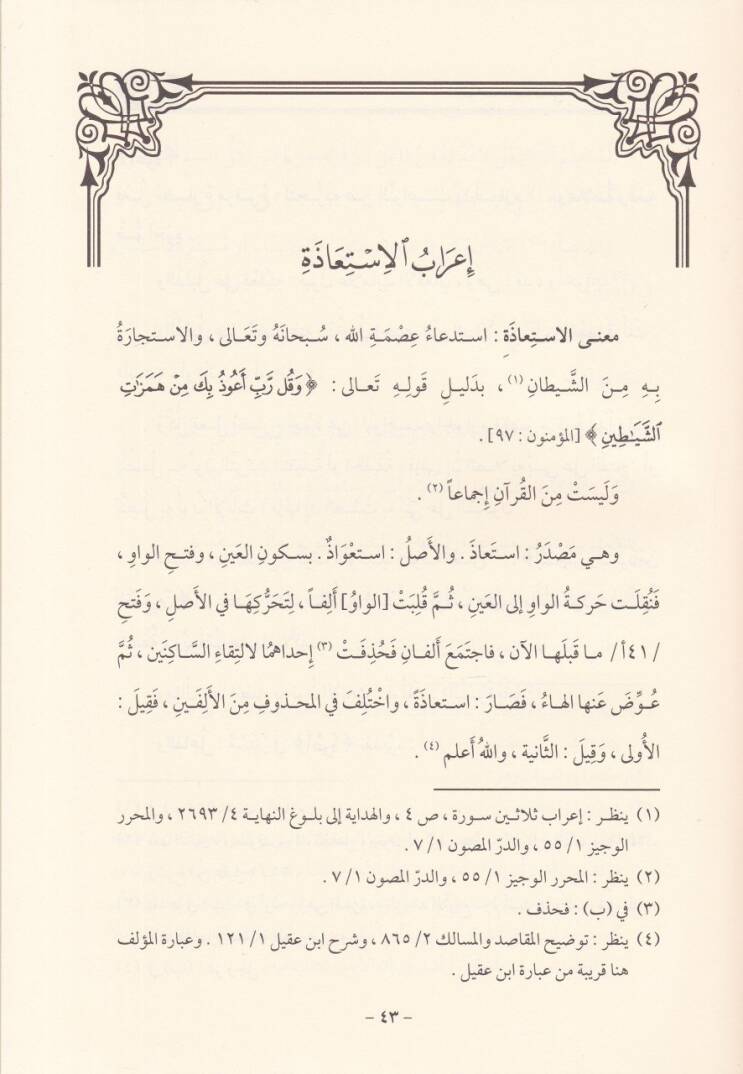 إِعْرَابُ ٱلِاسْتِعَاذَةِ
معنى الاستِعاذَةِ : استدعاءُ عِصْمَةِ الله ، سُبحانَهُ وتَعَالى ، والاستجارَةُ
بِهِ مِنَ الشَّيطانِ(١) ، بدَليلِ قَولِهِ تَعالى : ﴿ وَقُل رَّبِّ أَعُوذُ بِكَ مِنْ هَمَزَٰتِ
ٱلشَّيَٰطِينِ ﴾ [المؤمنون : ٩٧] .
وَلَيسَتْ مِنَ القُرآنِ إجماعاً(٢) .
وهي مَصْدَرُ : استَعاذَ . والأَصلُ : استعْوَاذٌ . بسكونِ العَينِ ، وفتحِ الواوِ ،
فَنُقِلَت حَركةُ الواوِ إلى العَينِ ، ثُمَّ قُلِبَتْ [الواوُ] أَلِفاً ، لِتَحَرُّكِهَا في الأَصلِ ، وَفَتحِ
/٤١أ/ ما قَبلَها الآن ، فاجتمَعَ ألفانِ فَحُذِفَتْ(٣) إحداهمُا لالتِقاءِ السَّاكِنَين ، ثُمَّ
عُوِّضَ عَنها الهاءُ ، فَصَارَ : استعاذَةً ، واخْتُلِفَ في المحذوفِ مِنَ الأَلِفَينِ ، فَقِيلَ :
الأُولى ، وَقِيلَ : الثَّانية ، واللهُ أَعلم(٤) .
(١) ينظر : إعراب ثلاثين سورة ، ص ٤ ، والهداية إلى بلوغ النهاية ٤/ ٢٦٩٣ ، والمحرر
الوجيز ١/ ٥٥ ، والدرّ المصون ١/ ٧ .
(٢) ينظر : المحرر الوجيز ١/ ٥٥ ، والدرّ المصون ١/ ٧ .
(٣) في (ب) : فحذف .
(٤) ينظر : توضيح المقاصد والمسالك ٢/ ٨٦٥ ، وشرح ابن عقيل ١/ ١٢١ . وعبارة المؤلف
هنا قريبة من عبارة ابن عقيل .
- ٤٣ -